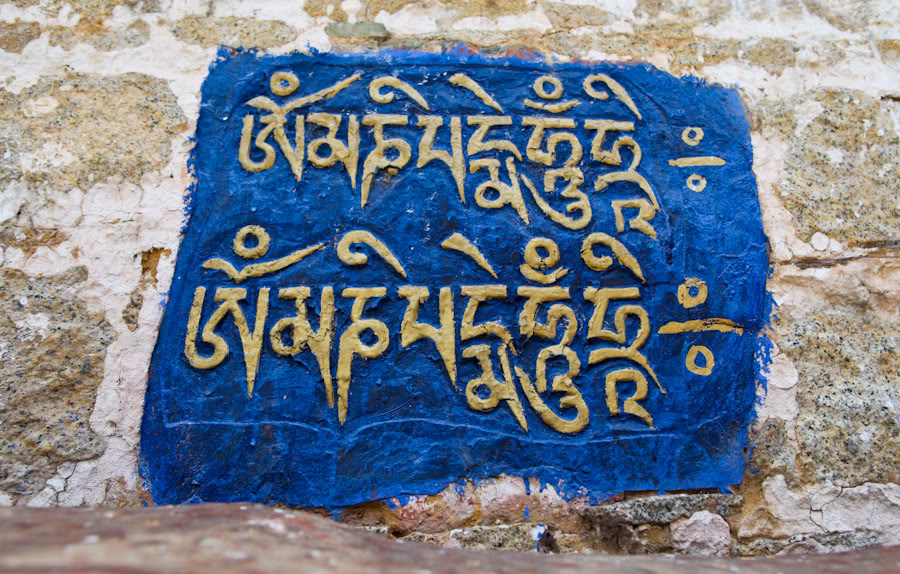 ཨོཾམཎིཔདྨེཧཱུྂཧྲཱིཿ
ཨོཾམཎིཔདྨེཧཱུྂཧྲཱིཿ